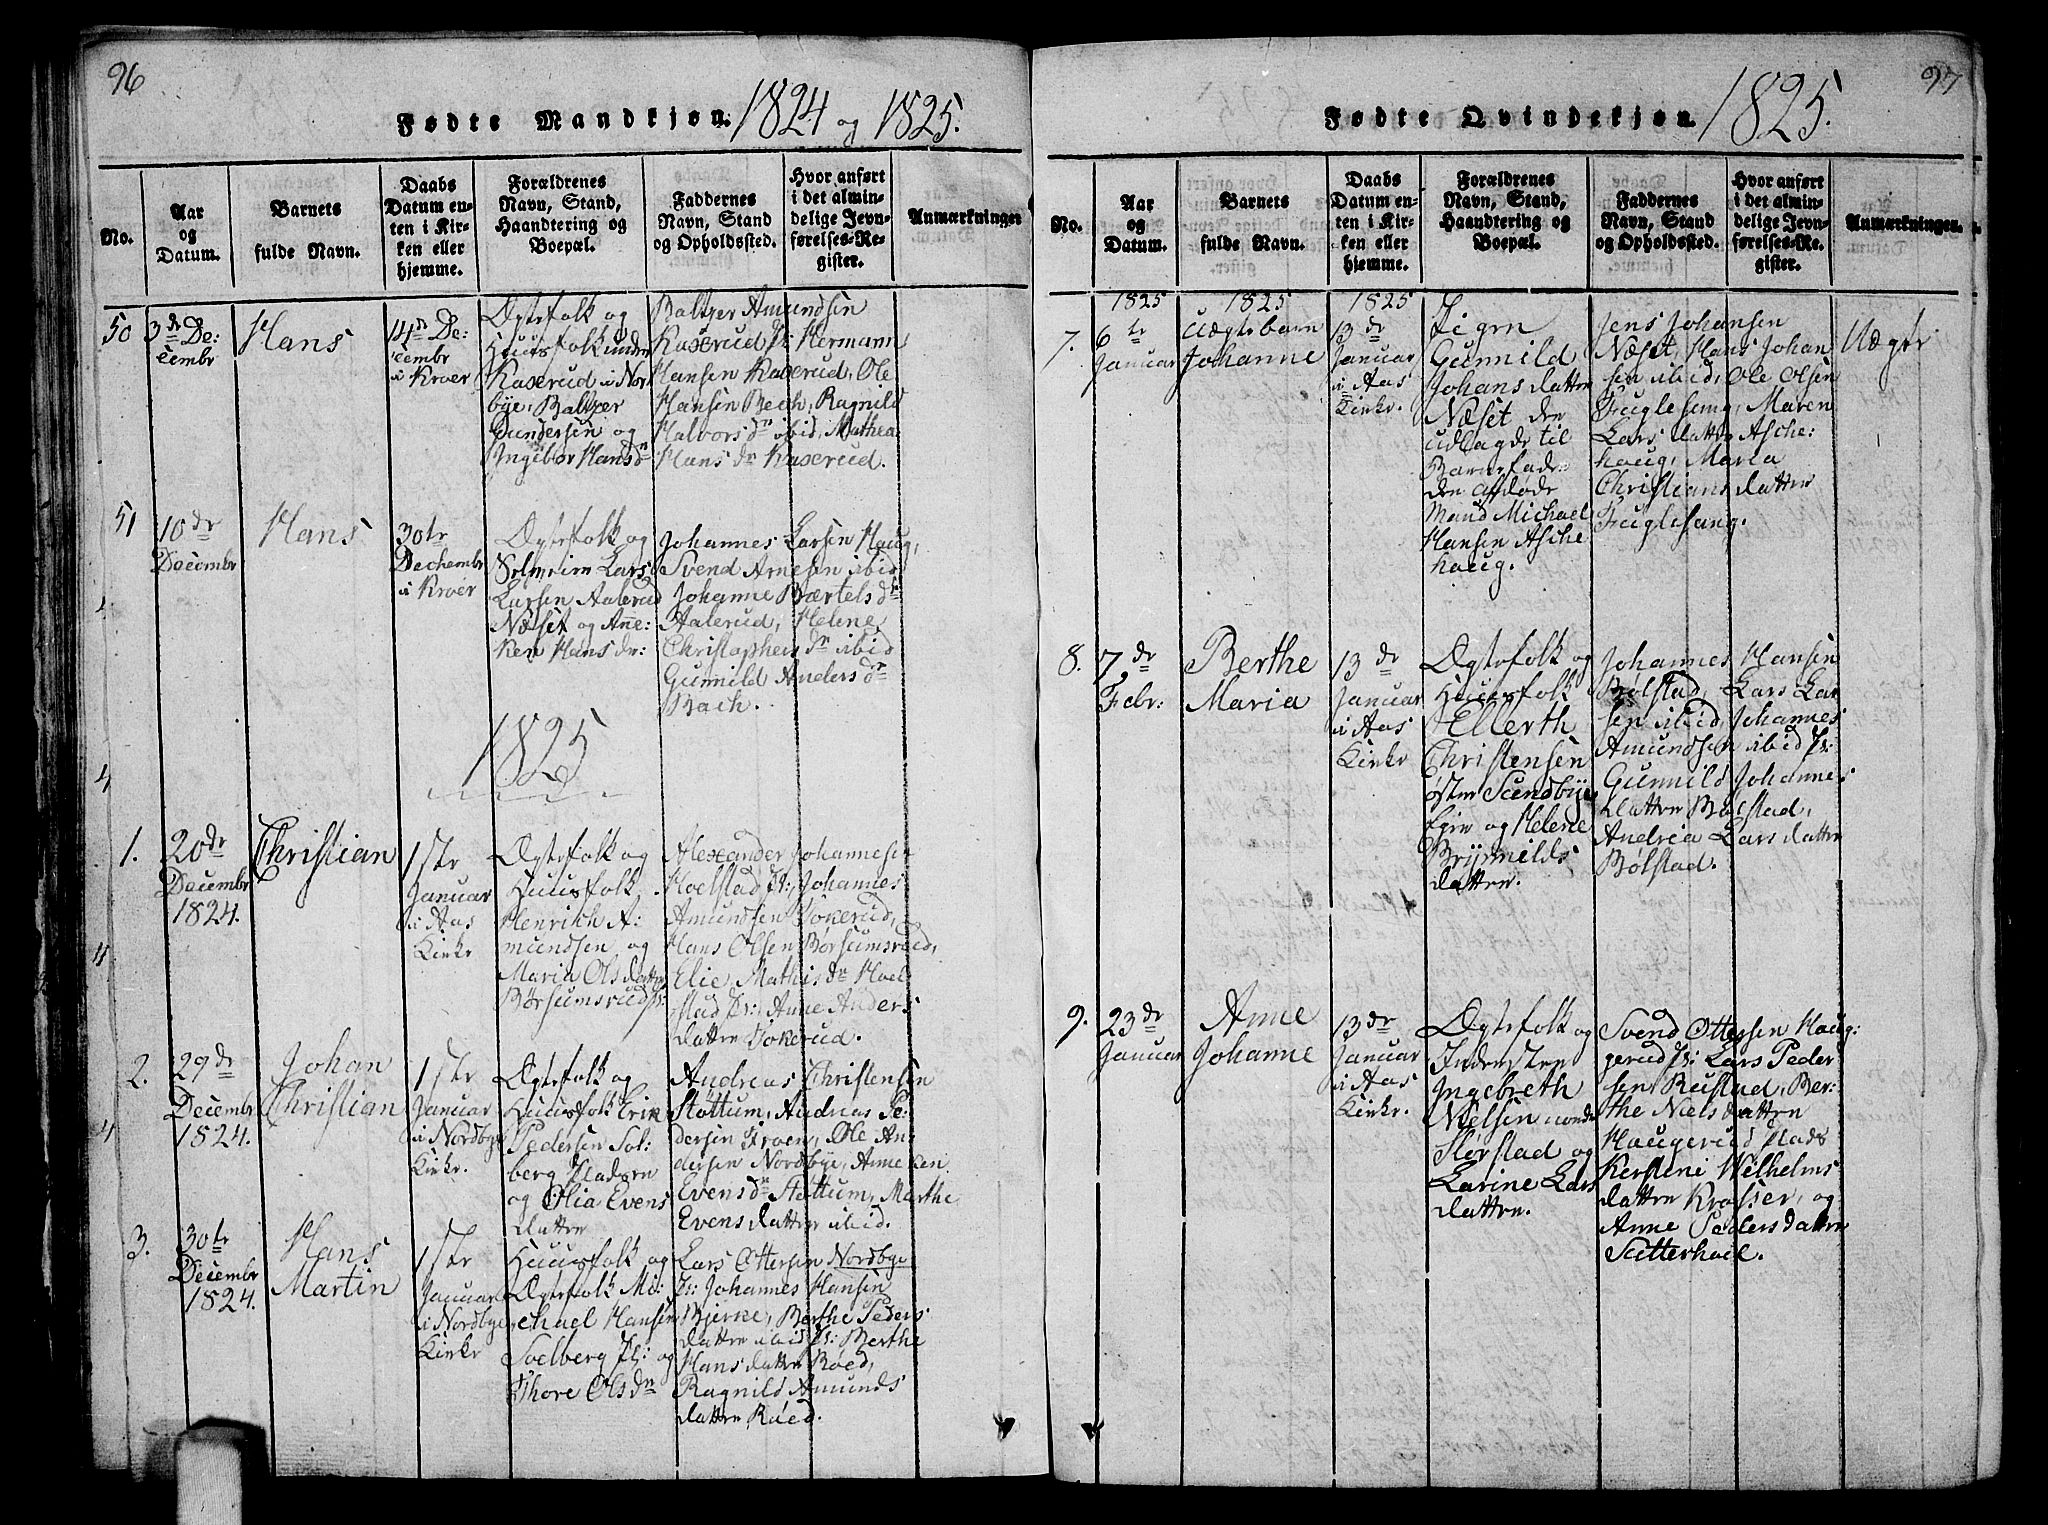 96
Fødte Mandkjøn. 1824 og 1825.
No.
Aar
og
Datum.
Barnets
fulde Navn.
Daabs
Datum en-
ten i Kir-
ken eller
hjemme.
Forældrenes
Navn, Stand,
Haandtering og
Boepæl.
Faddernes
Navn, Stand
og Opholdssted.
Hvor anført
i det almin-
delige Jevn-
førelses-Re-
gister.
Anmærkninger
50
3de De:
cembr
Hans
14de De:
cembr
i Kroer
Ægtefolk og
Huusfolk under
Kaxerud i Nor
bye, Baltzer
Gundersen og
Ingebor Hansdr
Baltzer Amundsen
Kaxerud Pl: Hermann
Hansen Kaxerud, Ole
Hansen Bech, Ragnild
Halvorsdr ibid, Mathea
Hansdr Kaxerud.
51
10de
Decembr
Hans
30te
Dechembr
i Kroer
Ægtefolk og
Selveier Lars
Larsen Aalerud
Næset og Ane:
ken Hansdr:
Johannes Larsen Haug,
Svend Arnesen ibid
Johanne Bærtelsdr
Aalerud, Helene
Christophersdr ibid
Gunnild Andersdr
Bach.
1825
1.
20de
Decembr
1824.
Christian
1ste
Januar
i Aas
Kirke
Ægtefolk og
Huusfolk
Henrich A:
mundsen og
Maria Olsdatter
Børsumsrudpl:
Alexander Johannesen
Hoelstad Pl:, Johannes
Amundsen Tokerud,
Hans Olsen Børsumsrud,
Elie Mathisdr Hoel
stad Pl: Anne Anders
datter Tokerud.
2.
29de
Decembr
1824.
Johan
Christian
1ste
Januar
i Nordbye
Kirke.
Ægtefolk og
Huusfolk Erik
Pedersen Sol:
berg Pladsen
og Olia Evens
datter
Andreas Christensen
Støttum, Andreas Pe:
dersen Kroer, Ole An
dersen Nordbye, Anneken
Evensdr Støttum, Marthe
Evensdatter ibid.
3.
30te
Decembr
1824.
Hans
Martin
1ste
Januar
i Nordbye
Kirke
Huusfolk og
Ægtefolk Mi:
chael Hansen
Soelberg Pl: og
Thore Olsdr
Lars Ottersen Nordbye
Pl: Johannes Hansen
Bjerke, Berthe Peders
datter ibid Pl: Berthe
Hansdatter Røed,
Ragnild Amunds
datter Røed.
97
Fødte Qvindekjøn 1825.
No.
Aar
og
Datum.
Barnets
fulde Navn.
Daabs
Datum en-
ten i Kir-
ken eller
hjemme.
Forældrenes
Navn, Stand,
Haandtering og
Boepæl.
Faddernes
Navn, Stand
og Opholdssted.
Hvor anført
i det almin-
delige Jevn-
førelses-Re-
gister.
Anmærkninger.
7.
1825
6te
Januar
1825
Uægtebarn
Johanne
1825
13de
Januar
i Aas
Kirke.
Pigen
Gunnild
Johansdatter
Næset den
udlagde til
Barnefader
den afdøde
Mand Michael
Hansen Asche
houg.
Jens Johansen
Næset, Hans Johan
sen ibid, Ole Olsen
Fuglesang, Maren
Larsdatter Asche:
houg, Maria
Christiansdatter
Fuglesang.
Uægte
8.
7,de
Febr:
Berthe
Maria
13de
Januar
i Aas
Kirke
Ægtefolk og
Huusfolk
Ellerth
Christensen
øster Sundbye
Eien og Helene
Brynnilds
datter.
Johannes Hansen
Bølstad, Lars Lar
sen ibid, Johannes
Amundsen ibid Pl:
Gunnild Johannes
datter Bølstad,
Andrea Larsdatter
Bølstad.
9.
23de
Januar
Anne
Johanne
13de
Januar
i Aas
Kirke.
Ægtefolk og
Indersten
Ingebreth
Nielsen nordre
Slørstad og
Larine Lars
datter.
Svend Ottersen Houg:
gerud Pl: Lars Peder
sen Rustad, Ber:
the Nielsdatter
Hougerud Plads
Kerstine Wilhelms
datter Krosser, og
Anne Pedersdatter
Sætterhoel.